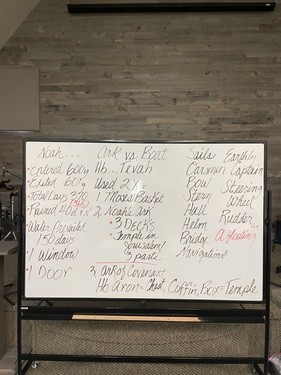 Noah... Ark vs. Boat Sails Earthly
•Entered 600y Hb... Tevah Canvas Captain
•Exited 601y Used 2x Bow Steering
•Total Days 370 1 Moses Basket Stern Wheel
•Rained 40d 2 Noahs Ark Hull Rudder
Water Prevailed •3 Decks Helm
150 days Temple in Bridge A floating
•1 Window Jerusalem Navigational
3 parts
•1 Door 3 Ark of Covenant
Hb Aron = Chest, Coffin, Box = Temple